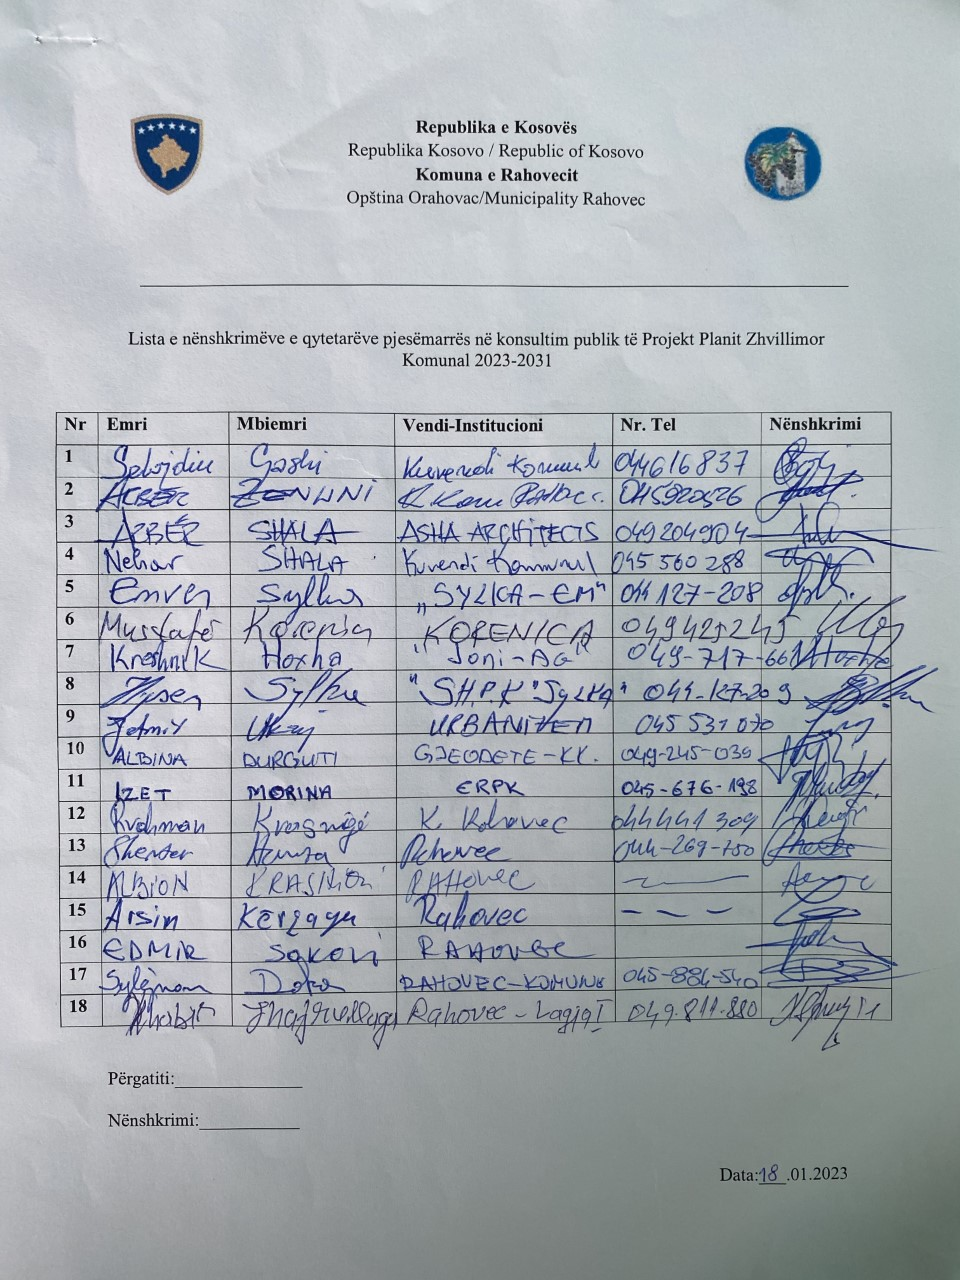 Republika e Kosovës
Republika Kosovo / Republic of Kosovo
Komuna e Rahovecit
Opština Orahovac/Municipality Rahovec
Lista e nënshkrimëve e qytetarëve pjesëmarrës në konsultim publik të Projekt Planit Zhvillimor
Komunal 2023-2031
Nr Emri Mbiemri Vendi-Institucioni Nr. Tel Nënshkrimi
1 Gashi Kuvendi Komunal 044616837
2 ALBER ZENUNI
3 ARBËR SHALA ASHA ARCHITECTS 049204904
4 Nehar SHALA Kuvendi Komunal 045 560 288
5 Enver Sylka „SYLKA-EM" 044 127-208
6 Mustafë Korenica "KORENICA" 049425245
7 Kreshnik Hoxha "Joni-AG" 049-717-661
8 Hysen Sylka "SH.P.K "Sylka" 044-127-209
9 URBANIZEM 045 531 070
10 ALBINA DURGUTI GJEODETE-KK. 049-245-039
11 IZET MORINA ERPK 045-676-198
12 Rrahman K. Rahovec 044441309
13 Skender Hamza Rahovec 044-269-750
14 ALBION KRASNIQI RAHOVEC
15 Arsim Rahovec - - -
16 EDMIR RAHOVEC
17 Sylejman RAHOVEC-KOMUNË 045-884-540
18 Rahovec - Lagja I 049-811-880
Përgatiti:
Nënshkrimi:
Data:18.01.2023